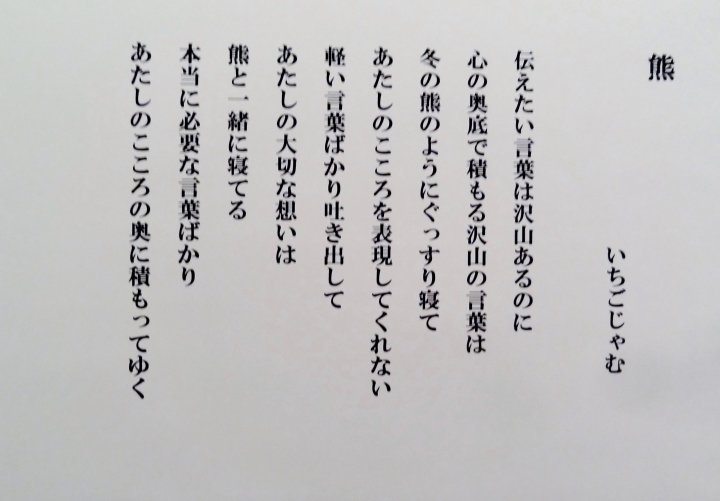 熊
いちごじゃむ
伝えたい言葉は沢山あるのに
心の奥底で積もる沢山の言葉は
冬の熊のようにぐっすり寝て
あたしのこころを表現してくれない
軽い言葉ばかり吐き出して
あたしの大切な想いは
熊と一緒に寝てる
本当に必要な言葉ばかり
あたしのこころの奥に積もってゆく